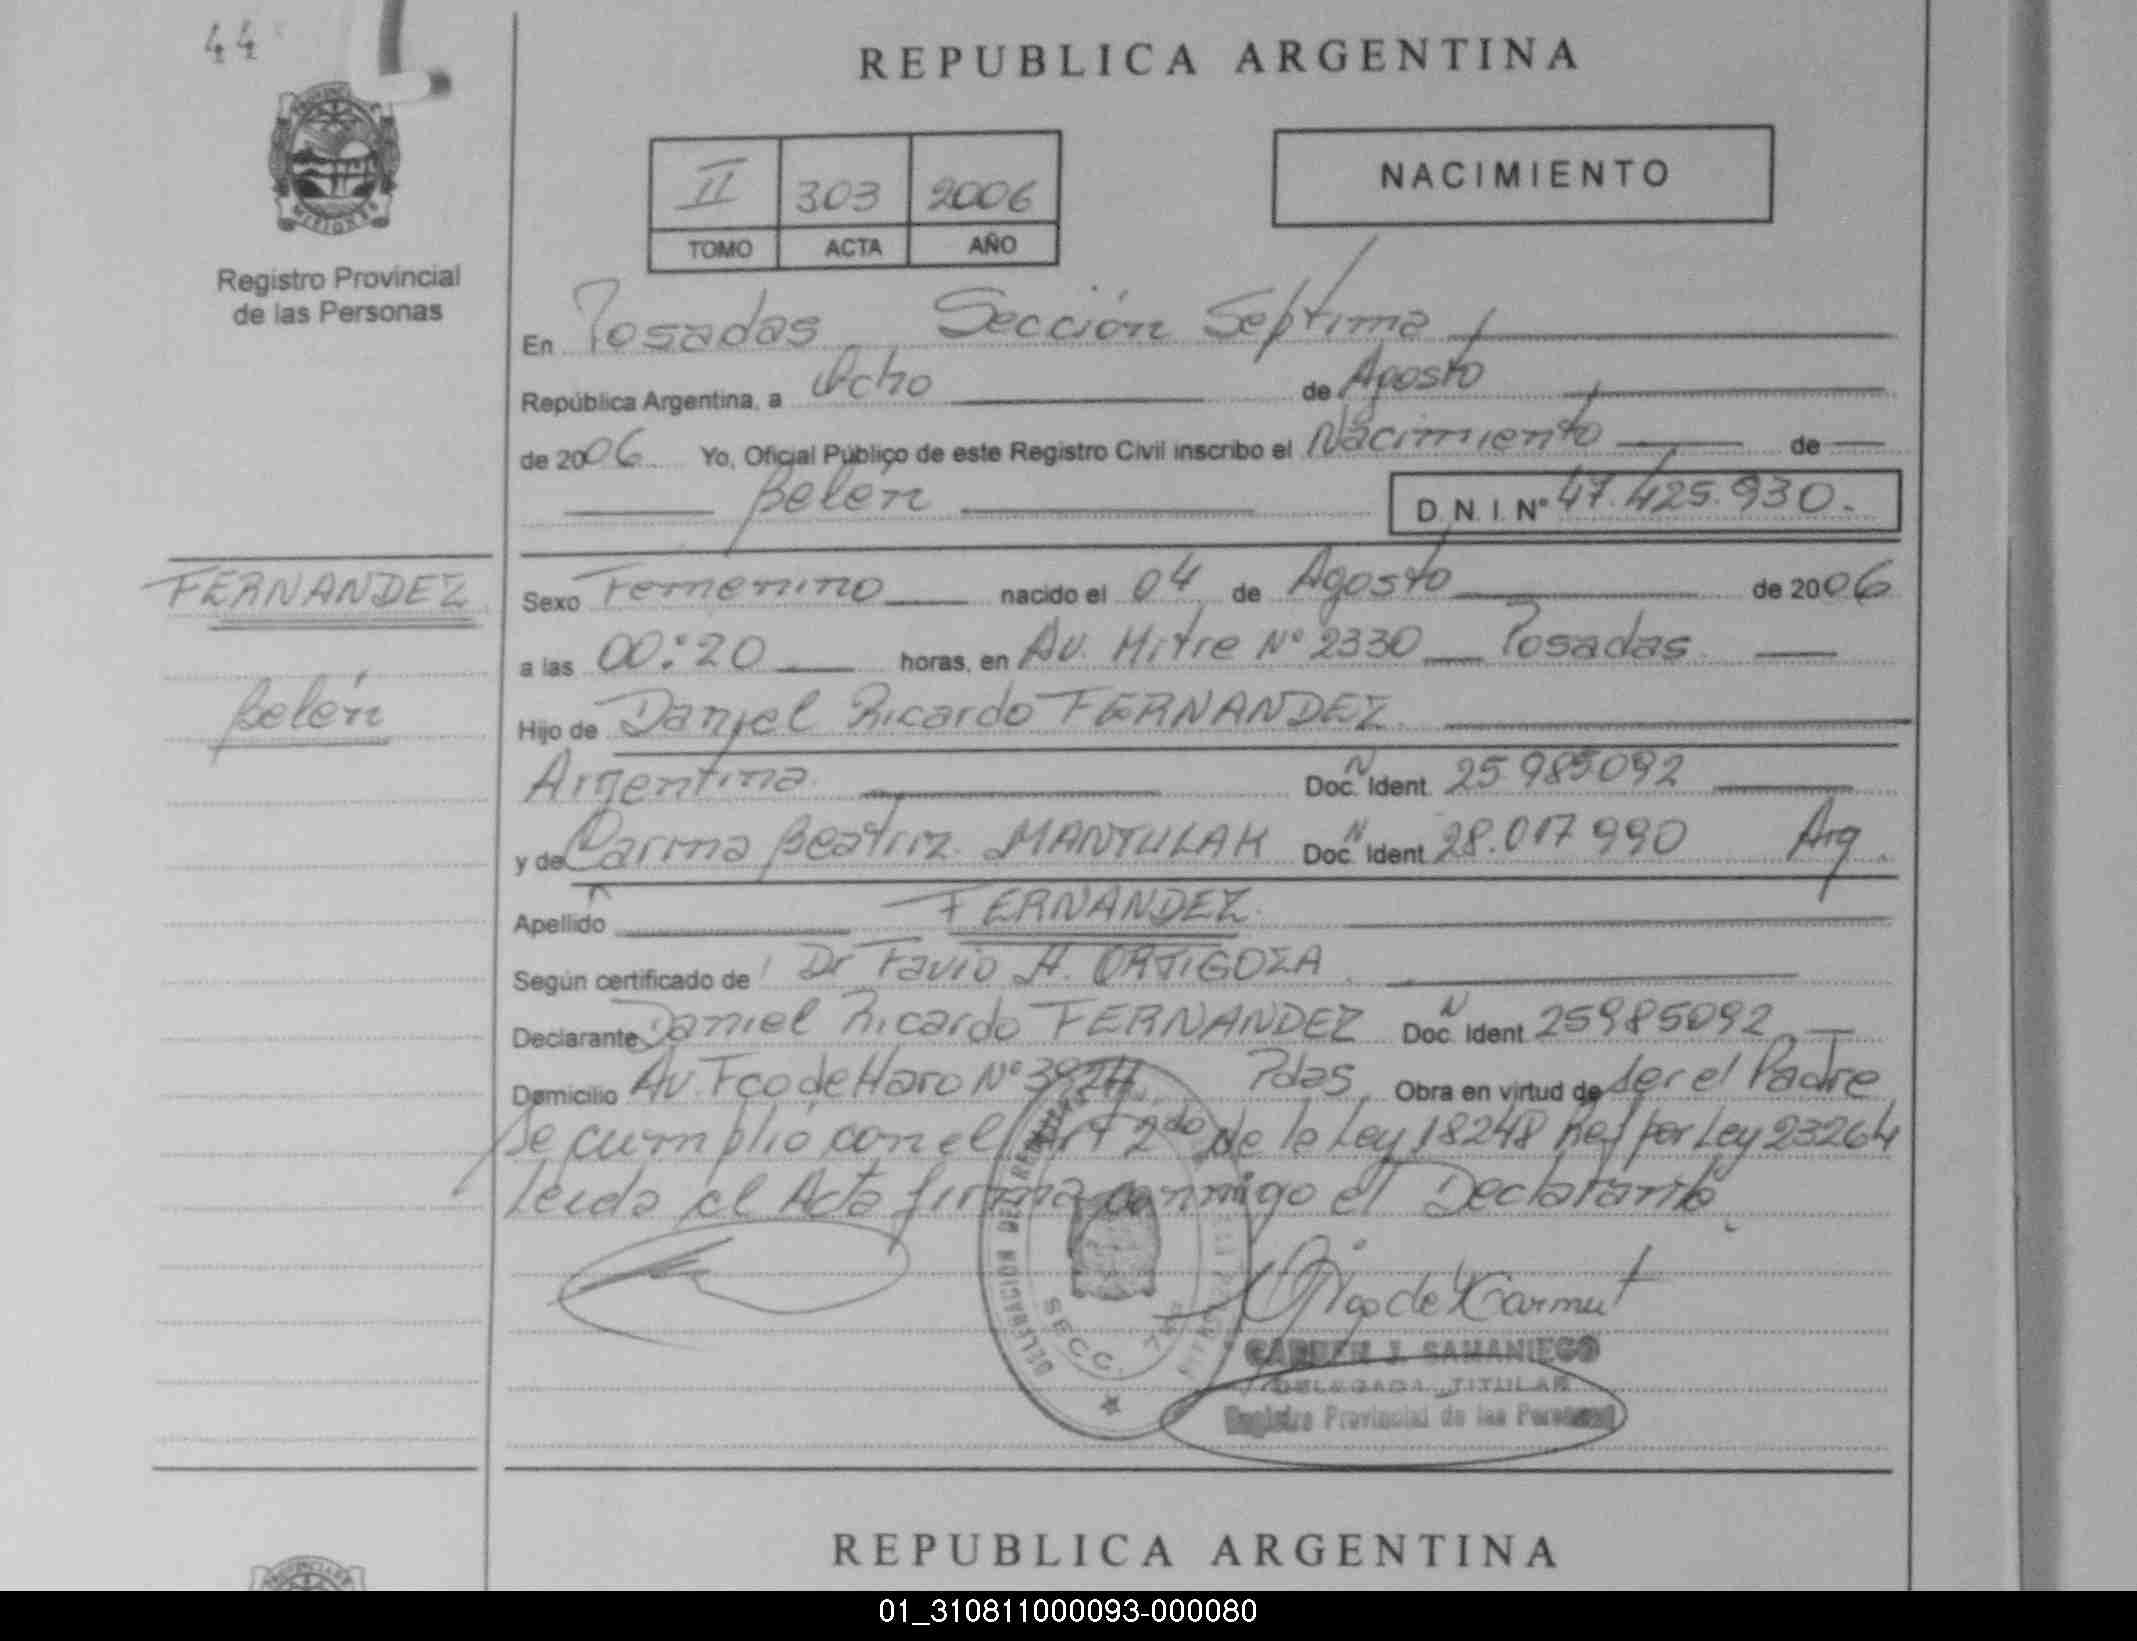 44
REPUBLICA ARGENTINA
NACIMIENTO
II 303 2006
TOMO ACTA AÑO
Registro Provincial
de las Personas
En Posadas Sección Séptima
República Argentina, a Ocho de Agosto
de 2006 Yo, Oficial Público de este Registro Civil inscribo el Nacimiento de
Belén D.N.I. Nº 47.425.930.
FERNANDEZ
Belén
Sexo Femenino nacido el 04 de Agosto de 2006
a las 00:20 horas, en Av. Mitre Nº 2330 Posadas
Hijo de Daniel Ricardo FERNANDEZ
Argentina Doc. N Ident. 25985092
y de Carina Beatriz MANTULAK Doc. N Ident 28.017990 Arg.
Apellido FERNANDEZ.
Según certificado de Dr Favio A. ORTIGOZA
Declarante Daniel Ricardo FERNANDEZ Doc. N Ident 25985092
Domicilio Av. Fco de Haro Nº Pdas. Obra en virtud de ser el Padre
Se cumplió con el Art 2do de la Ley 18248 Ref por Ley 23264
Leida el Acta firma conmigo el Declarante.
SECC. 7ma
CARMEN J. SAMANIEGO
DELEGADA TITULAR
Registro Provincial de las Personas
REPUBLICA ARGENTINA
01_310811000093-000080